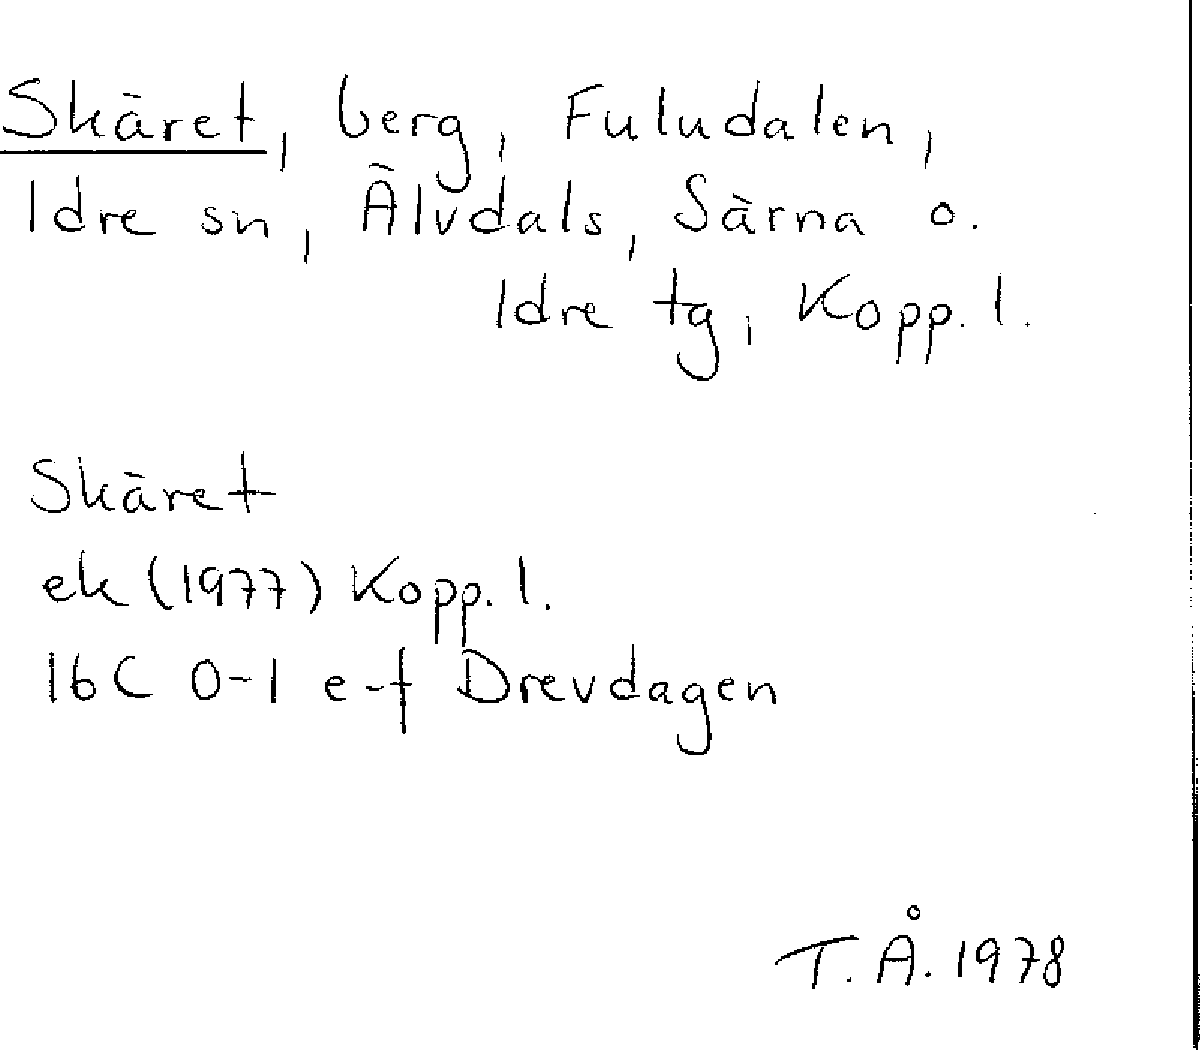 Skäret, berg, Fuludalen,
Idre sn, Älvdals, Särna o.
Idre tg, Kopp. l.
Skäret
ek (1977) Kopp. l.
16C 0-1 e-f Drevdagen
T.Å. 1978